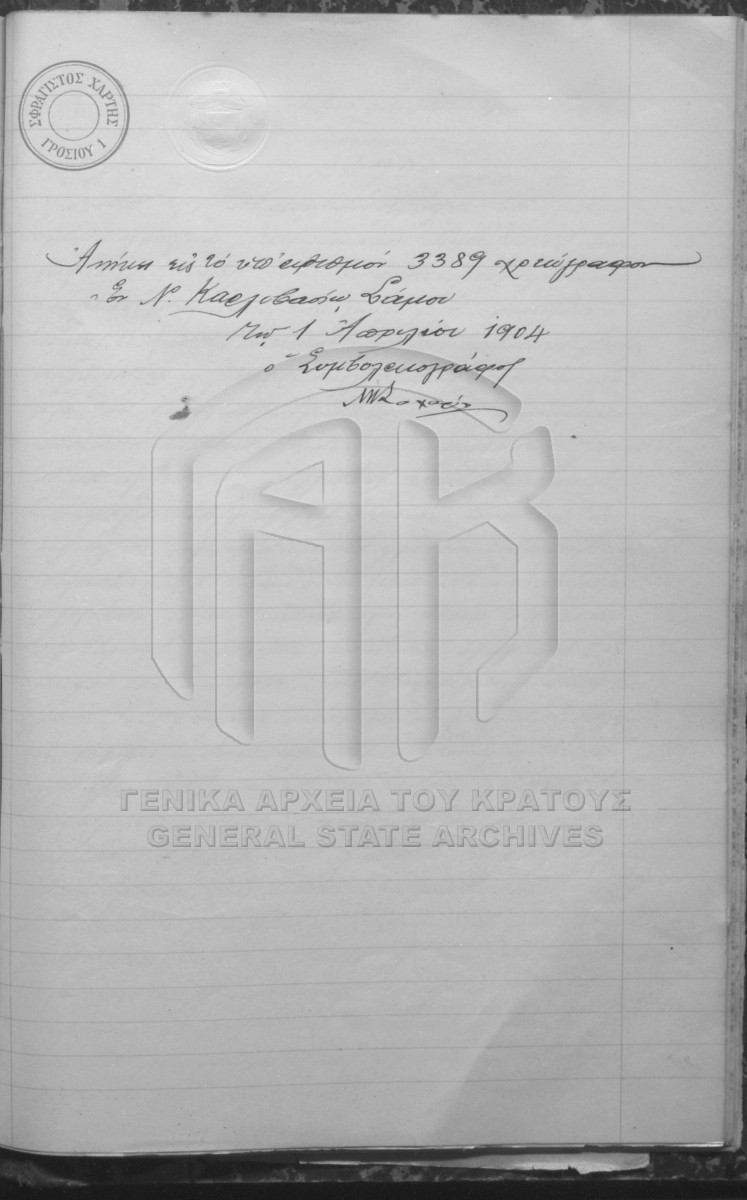 ΣΦΡΑΓΙΣΤΟΣ ΧΑΡΤΗΣ
ΓΡΟΣΙΟΥ 1
Ἀνήκει εἰς τό ὑπ' ἀριθμόν 3389 χρεώγραφον
Ἐν Ν. Καρλοβασίῳ Σάμου
τῇ 1 Ἀπριλίου 1904
ὁ Συμβολαιογράφος
ΓΕΝΙΚΑ ΑΡΧΕΙΑ ΤΟΥ ΚΡΑΤΟΥΣ
GENERAL STATE ARCHIVES